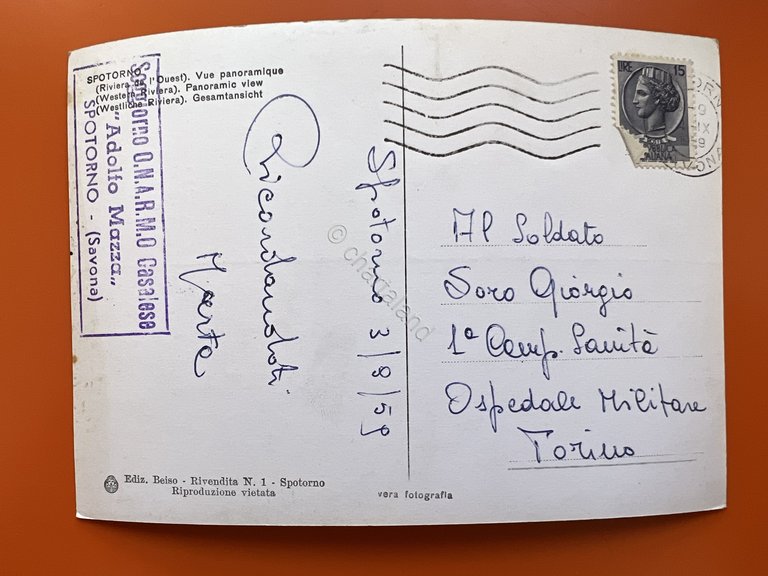 SPOTORNO (Riviera de l'Ouest). Vue panoramique
(Western Riviera). Panoramic view
(Westliche Riviera). Gesamtansicht
Soggiorno O.N.A.R.M.O Casalese
"Adolfo Mazza"
SPOTORNO - (Savona)
Ricordandoti
Marta
Spotorno 3/9/59
LIRE 15
Al Soldato
Soro Giorgio
1ª Comp. Sanità
Ospedale Militare
Torino
Ediz. Beiso - Rivendita N. 1 - Spotorno
Riproduzione vietata
vera fotografia
© chagaland